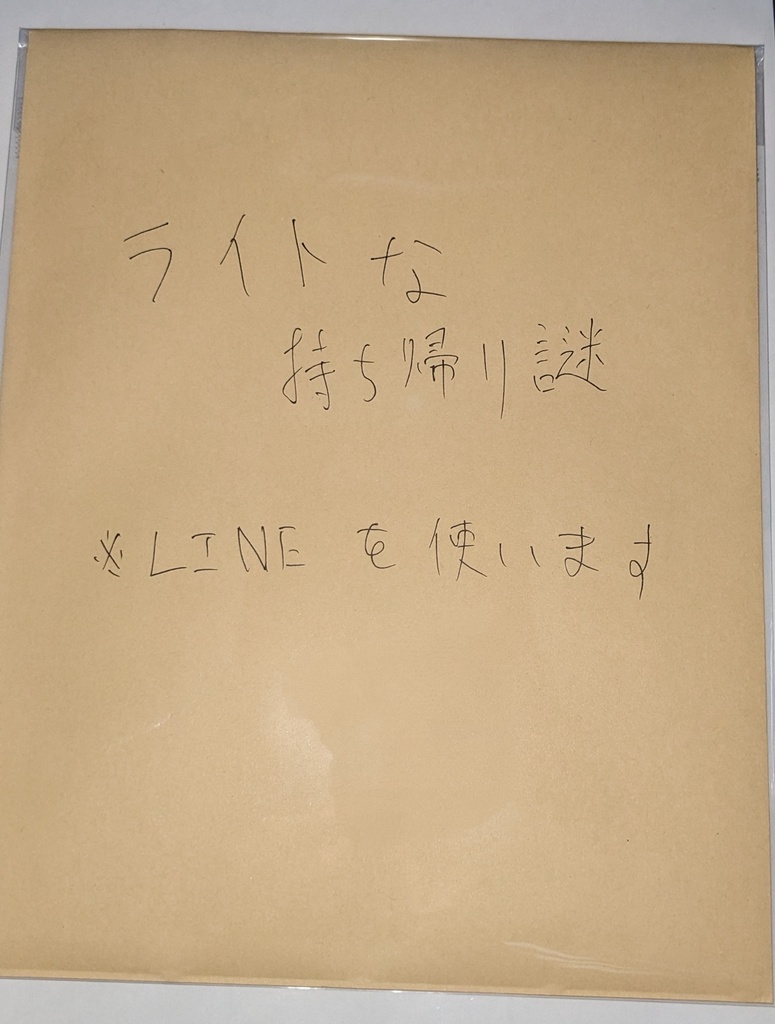 ライトな
持ち帰り謎
※LINEを使います